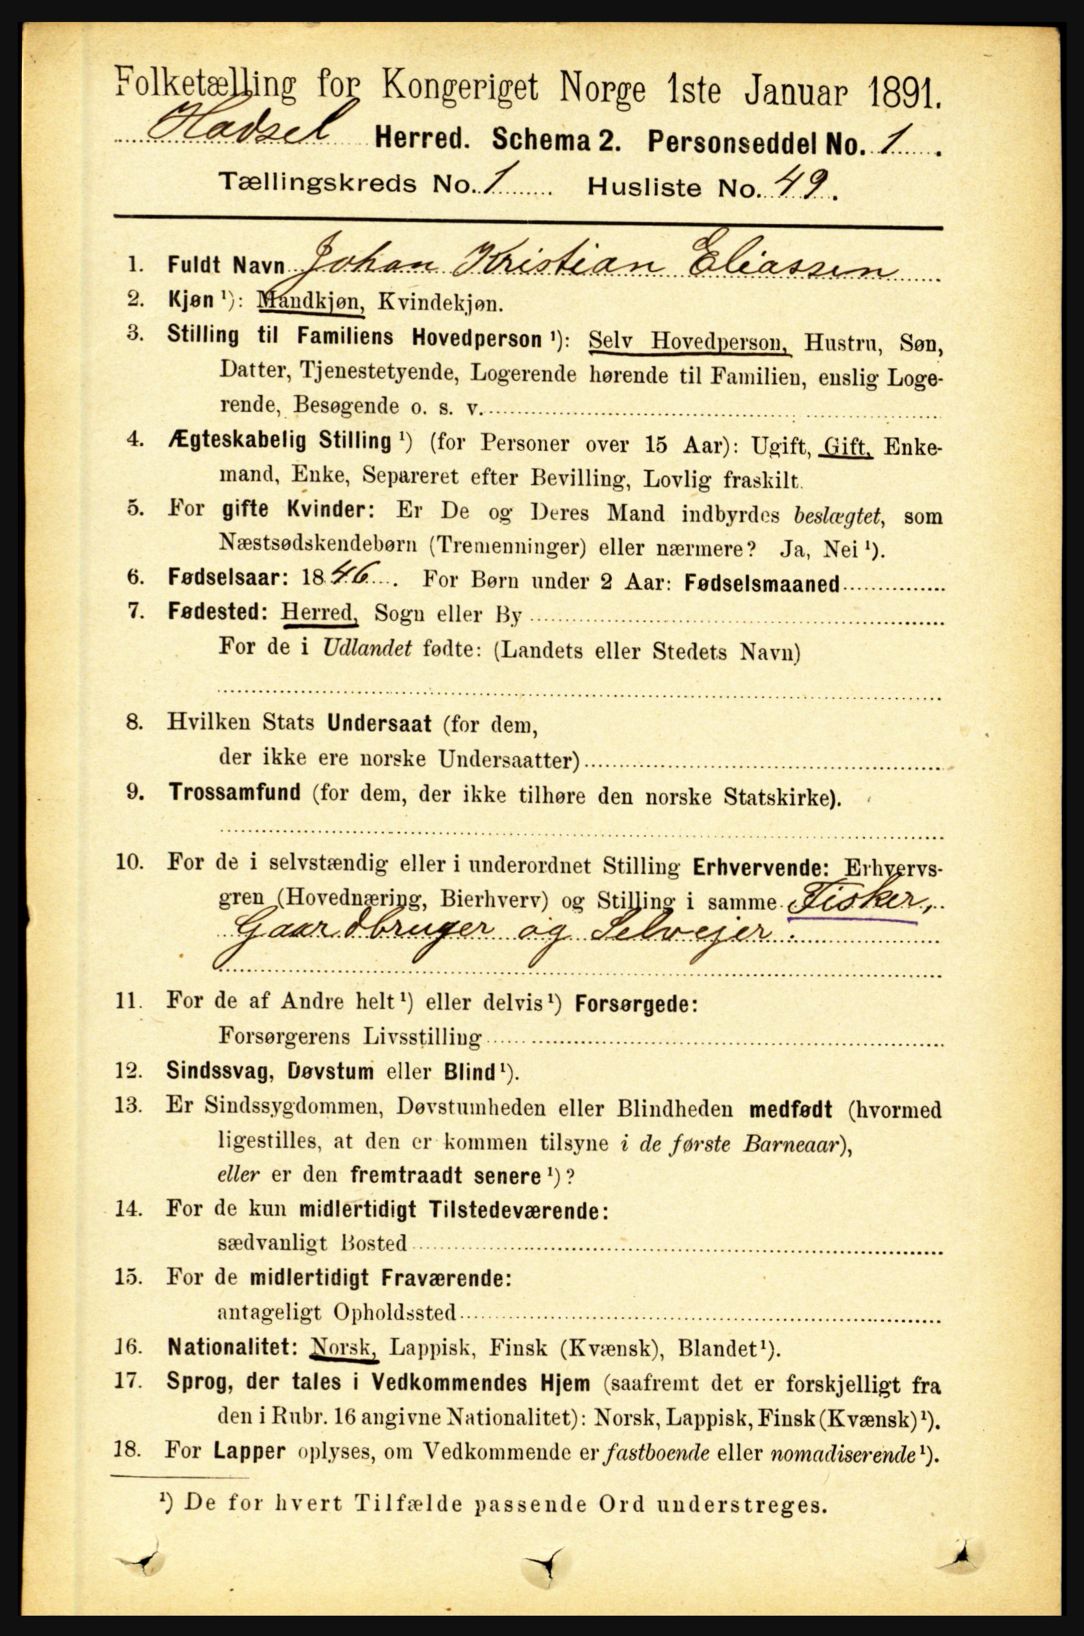 Folketælling for Kongeriget Norge 1ste Januar 1891.
Hadsel Herred. Schema 2. Personseddel No. 1.
Tællingskreds No. 1 Husliste No. 49.
1. Fuldt Navn Johan Kristian Eliassen
2. Kjøn ¹): Mandkjøn, Kvindekjøn.
3. Stilling til Familiens Hovedperson ¹): Selv Hovedperson, Hustru, Søn,
Datter, Tjenestetyende, Logerende hørende til Familien, enslig Loge-
rende, Besøgende o. s. v.
4. Ægteskabelig Stilling ¹) (for Personer over 15 Aar): Ugift, Gift, Enke-
mand, Enke, Separeret efter Bevilling, Lovlig fraskilt.
5. For gifte Kvinder: Er De og Deres Mand indbyrdes beslægtet, som
Næstsødskendebørn (Tremenninger) eller nærmere? Ja, Nei ¹).
6. Fødselsaar: 1846. For Børn under 2 Aar: Fødselsmaaned
7. Fødested: Herred, Sogn eller By
For de i Udlandet fødte: (Landets eller Stedets Navn)
8. Hvilken Stats Undersaat (for dem,
der ikke ere norske Undersaatter)
9. Trossamfund (for dem, der ikke tilhøre den norske Statskirke).
10. For de i selvstændig eller i underordnet Stilling Erhvervende: Erhvervs-
gren (Hovednæring, Bierhverv) og Stilling i samme Fisker,
Gaardbruger og Selvejer.
11. For de af Andre helt ¹) eller delvis ¹) Forsørgede:
Forsørgerens Livsstilling
12. Sindssvag, Døvstum eller Blind ¹).
13. Er Sindssygdommen, Døvstumheden eller Blindheden medfødt (hvormed
ligestilles, at den er kommen tilsyne i de første Barneaar),
eller er den fremtraadt senere ¹)?
14. For de kun midlertidigt Tilstedeværende:
sædvanligt Bosted
15. For de midlertidigt Fraværende:
antageligt Opholdssted
16. Nationalitet: Norsk, Lappisk, Finsk (Kvænsk), Blandet ¹).
17. Sprog, der tales i Vedkommendes Hjem (saafremt det er forskjelligt fra
den i Rubr. 16 angivne Nationalitet): Norsk, Lappisk, Finsk (Kvænsk) ¹).
18. For Lapper oplyses, om Vedkommende er fastboende eller nomadiserende ¹).
¹) De for hvert Tilfælde passende Ord understreges.